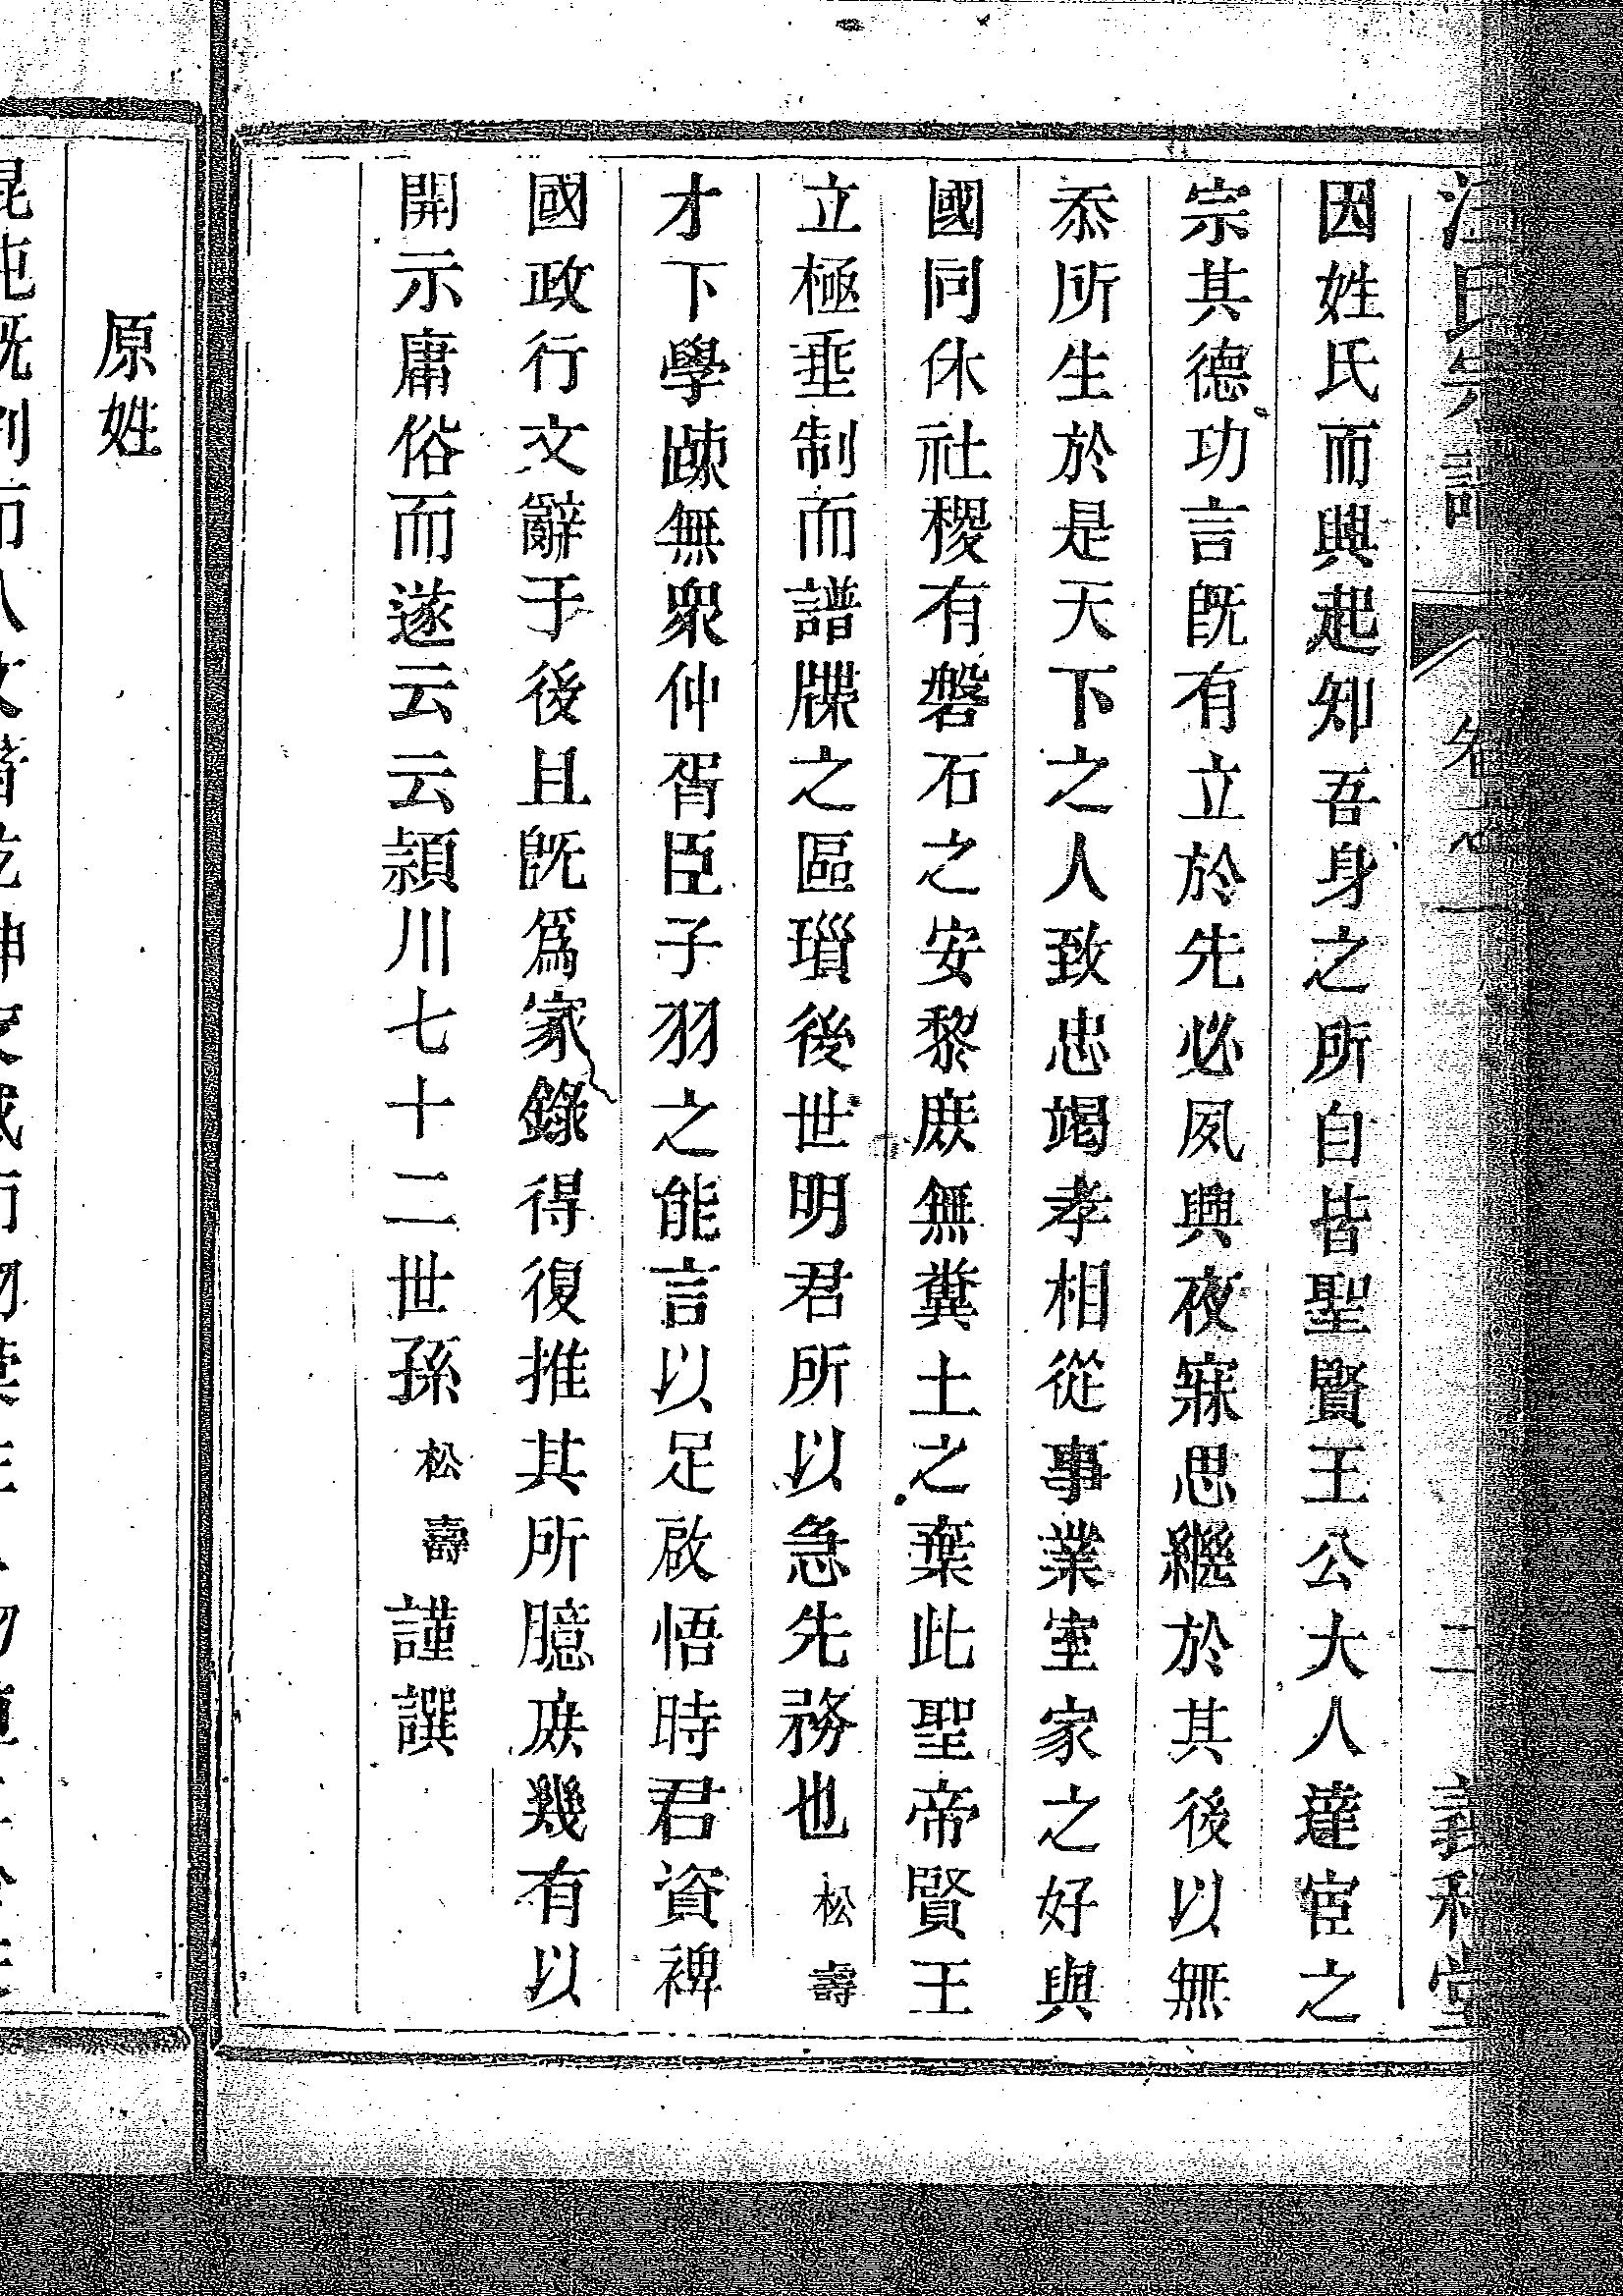 汪氏宗譜 卷之一 二 義和堂
因姓氏而興起知吾身之所自皆聖賢王公大人達宦之
宗其德功言既有立於先必夙興夜寐思繼於其後以無
忝所生於是天下之人致忠竭孝相從事業室家之好與
國同休社稷有磐石之安黎庶無糞土之棄此聖帝賢王
立極垂制而譜牒之區瑣後世明君所以急先務也松壽
才下學踈無衆仲胥臣子羽之能言以足啟悟時君資裨
國政行文辭于後且既爲家錄得復推其所臆庶幾有以
開示庸俗而遂云云潁川七十二世孫松壽謹譔
原姓